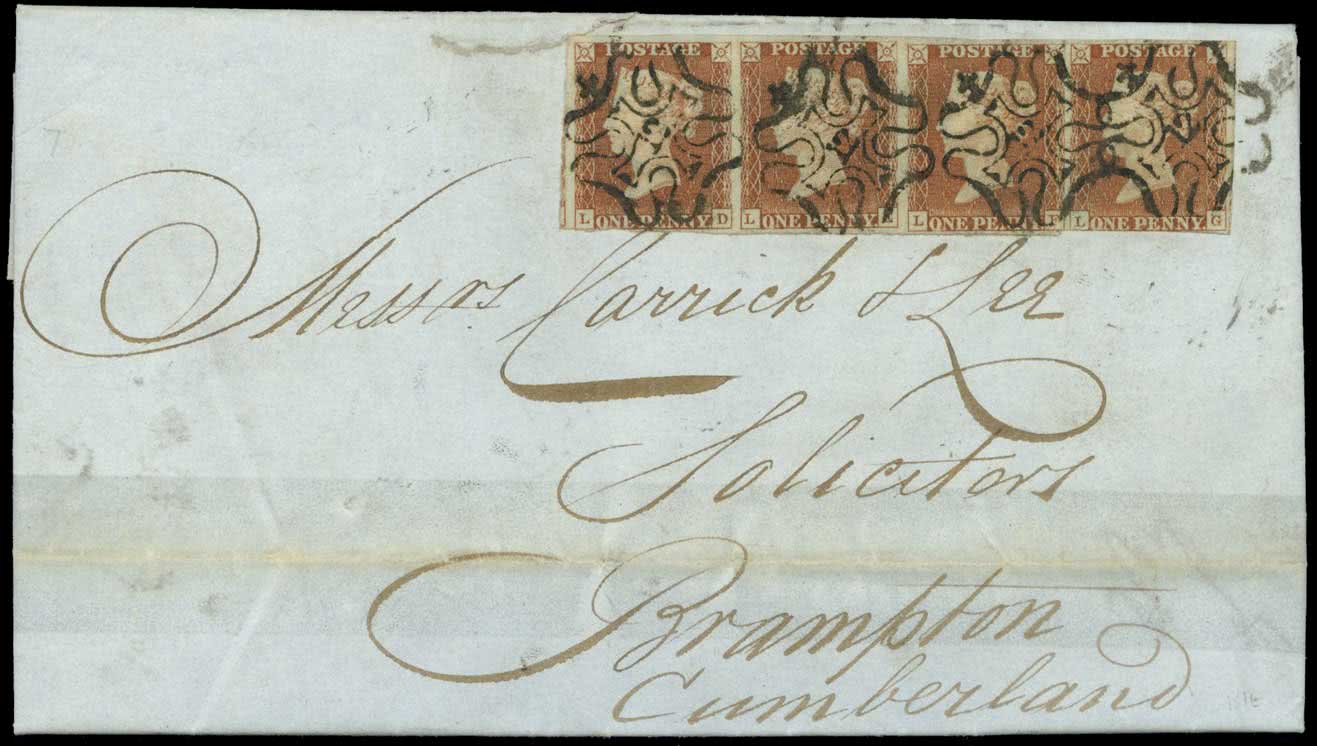 POSTAGE POSTAGE POSTAGE POSTAGE
L ONE PENNY. D L ONE PENNY. L ONE PENNY F L ONE PENNY. G
Messrs Carrick & Lee
Solicitors
Brampton
Cumberland